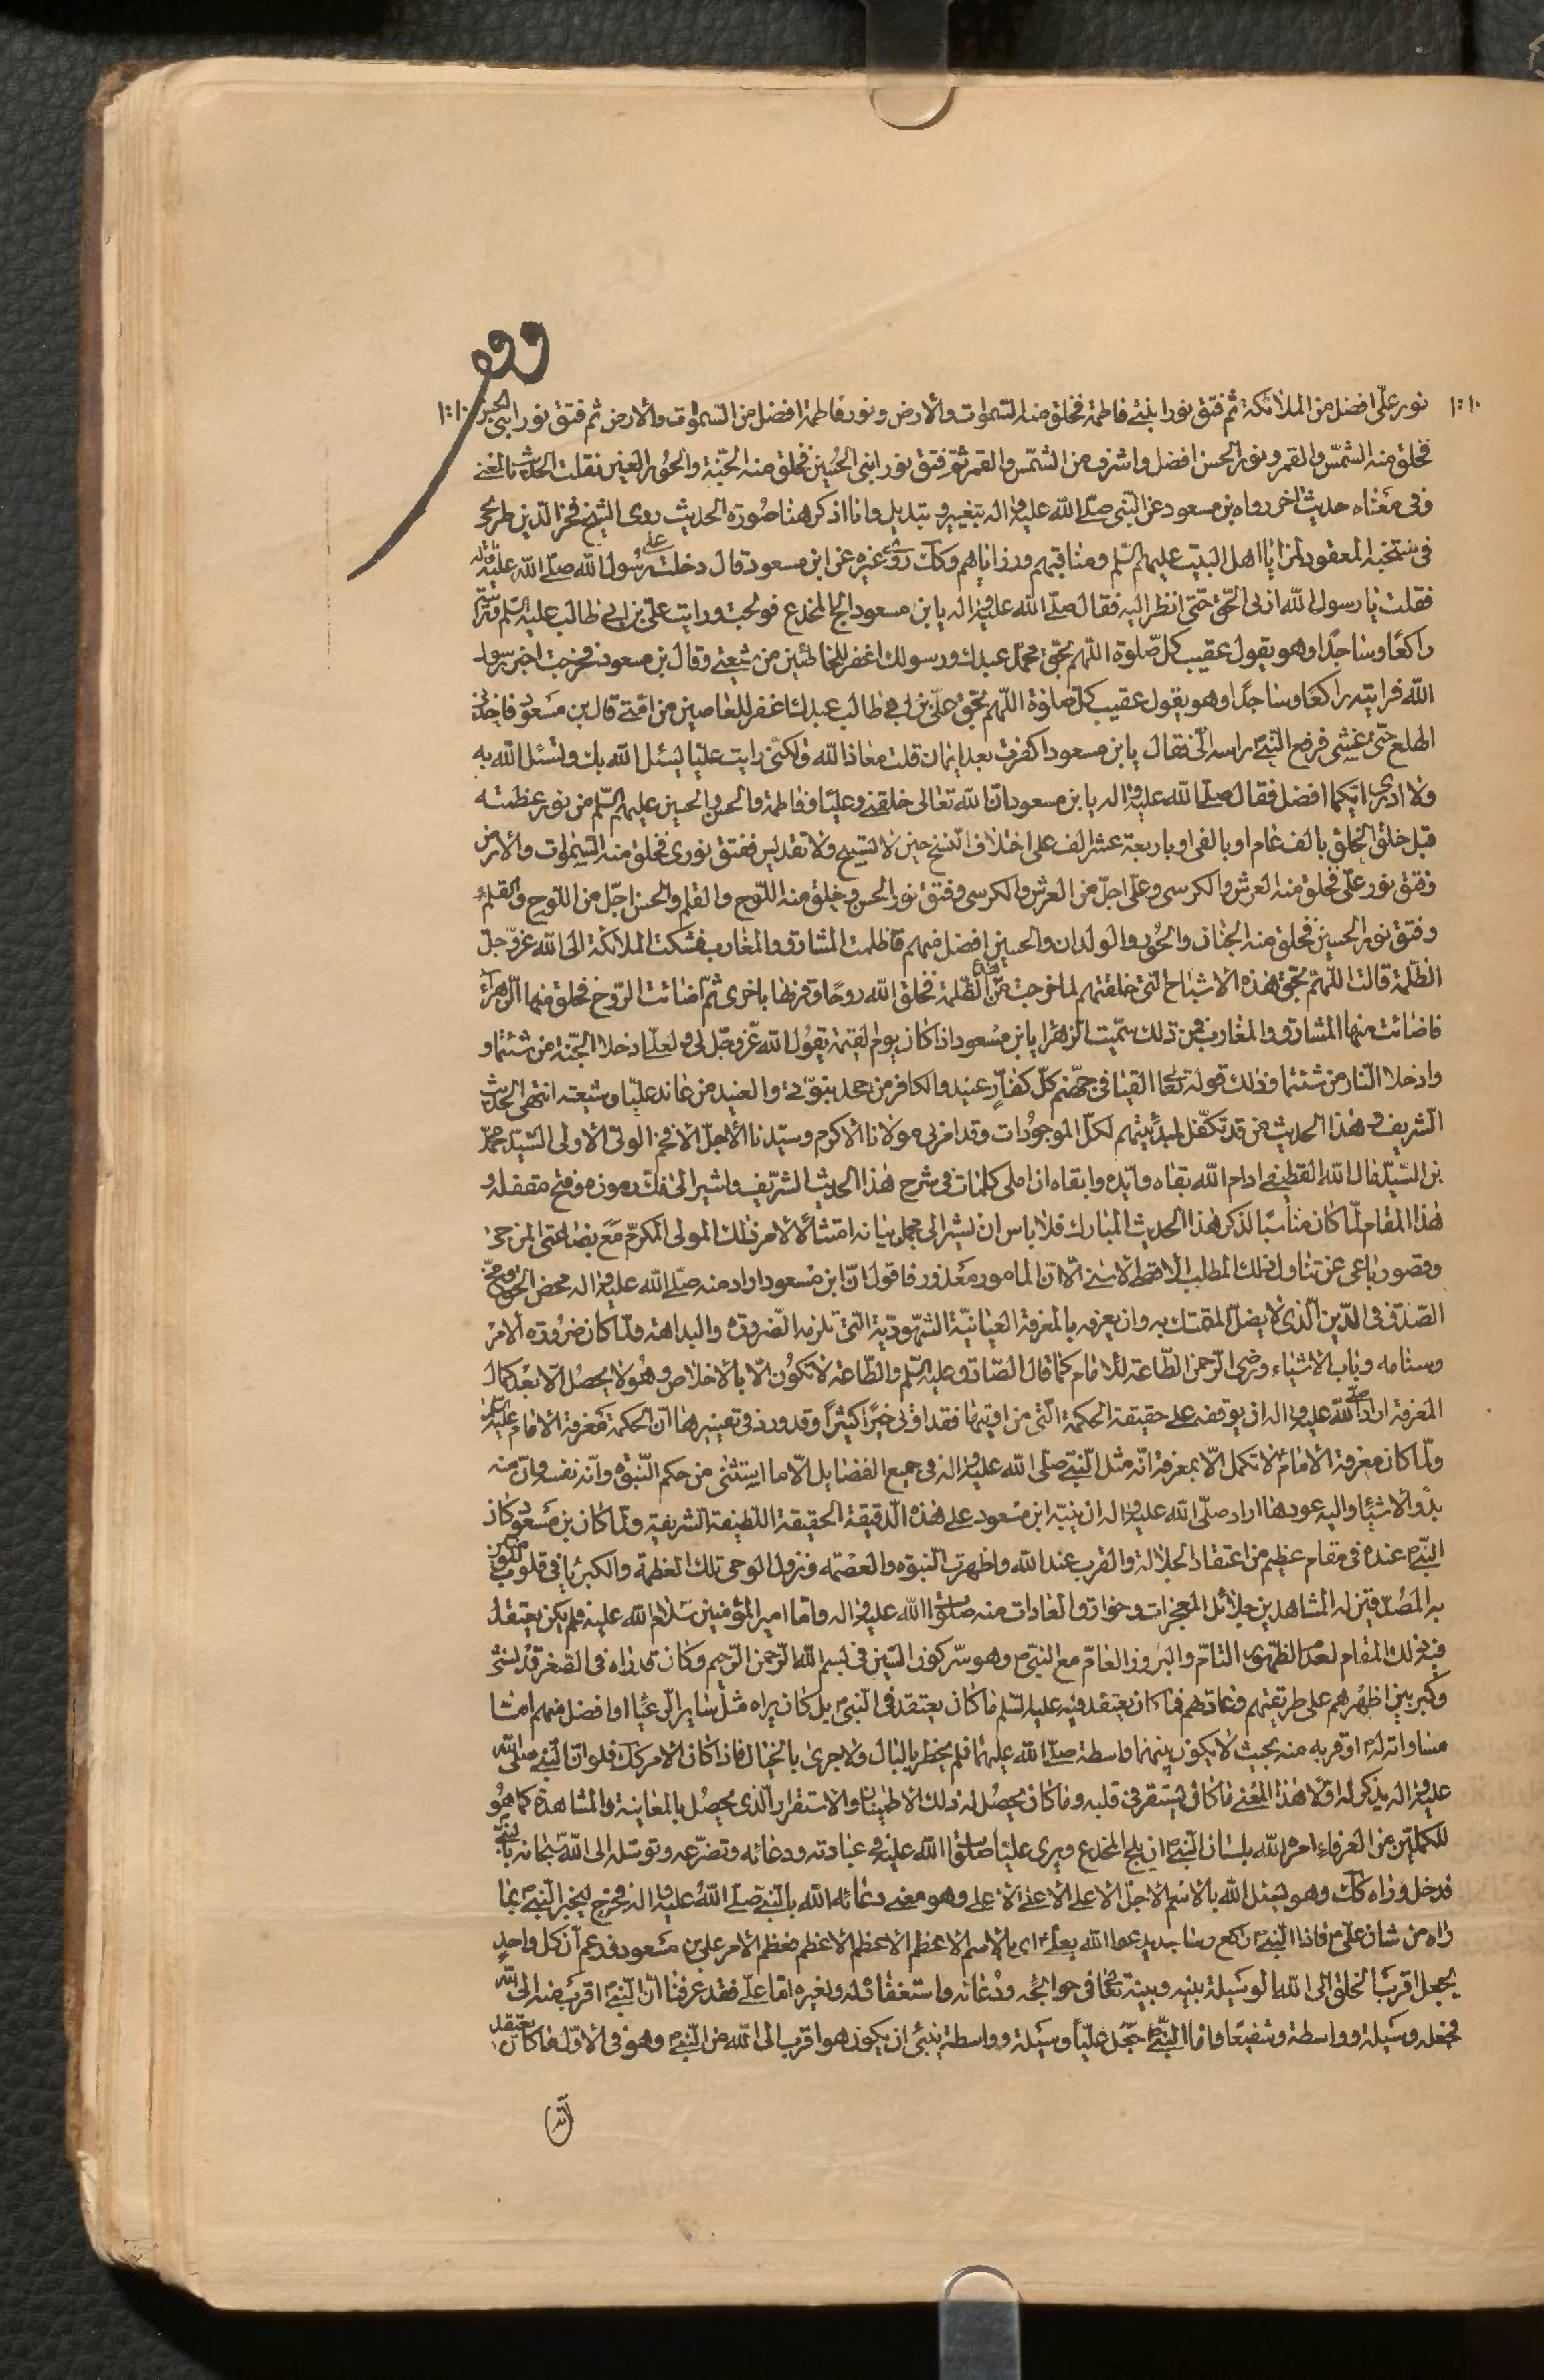 نور علىّ افضل من الملائكة ثم فتق نور ابنتى فاطمة فخلق منه السموات والارض ونور فاطمة افضل من السموات والارض ثم فتق نور ابنى الحسن
فخلق منه الشمس والقمر ونور الحسن افضل واشرف من الشمس والقمر ثم فتق نور ابنى الحسين فخلق منه الجنّة والحور العين نقلت الحديث بالمعنى
وفى معناه حديث اخر رواه بن مسعود عن النبى صلى الله عليه واله بتغيير وتبديل وانا اذكر هنا صورة الحديث روى الشيخ فخر الدين طريحى
فى منتخبه المعقود لمزايا اهل البيت عليهم السلم ومناقبهم ورزاياهم وكك روى غيره عن ابن مسعود قال دخلت على رسول الله صلى الله عليه واله
فقلت يا رسول الله ارنى الحق حتى انظر اليه فقال صلى الله عليه واله يا بن مسعود لج المخدع فولجت ورايت على بن ابى طالب عليه السلم
راكعًا وساجدًا وهو يقول عقيب كل صلوة اللهم بحق محمد عبدك ورسولك اغفر للخاطئين من شيعتى وقال بن مسعود فخرجت اخبر رسول
الله فرايته راكعًا وساجدًا وهو يقول عقيب كل صلوة اللهم بحق على بن ابى طالب عبدك اغفر للعاصين من امتى قال بن مسعود فاخذنى
الهلع حتى غشى فرفع النبى راسه الىّ فقال يا بن مسعود اكفرت بعد ايمان قلت معاذ الله ولكنى رايت عليا يسئل الله بك وتسئل الله به
ولا ادرى ايكما افضل فقال صلى الله عليه واله يا بن مسعود ان الله تعالى خلقنى وعليا وفاطمة والحسن والحسين عليهم السلم من نور عظمته
قبل خلق الخلق بالف عام او بالفى او باربعة عشر الف على اختلاف النسخ حين لا تسبيح ولا تقديس ففتق نورى فخلق منه السموات والارض
وفتق نور علىّ فخلق منه العرش والكرسى وعلى اجلّ من العرش والكرسى وفتق نور الحسن وخلق منه اللوح والقلم والحسن اجل من اللوح والقلم
وفتق نور الحسين فخلق منه الجنان والحور والولدان والحسين افضل منهم فاظلمت المشارق والمغارب فشكت الملائكة الى الله عز وجل
الظلمة قالت اللهم بحق هذه الاشباح التى خلقتهم لما فرجت عنا الظلمة فخلق الله روحًا وقرنها باخرى ثم اضائت الروح فخلق منها الزهراء
فاضائت منها المشارق والمغارب فمن ذلك سميت الزهرا يا بن مسعود اذا كان يوم القيمة يقول الله عز وجل لى ولعلىّ ادخلا الجنة من شئتما و
وادخلا النار من شئتما وذلك قوله تعالى القيا فى جهنم كل كفار عنيد والكافر من جحد بنبوتى والعنيد من عاند عليا وشيعته انتهى الحديث
الشريف وهذا الحديث قد تكفل لمبدئيتهم لكل الموجودات وقد امرنى مولانا الاكرم وسيدنا الاجل الافخم الولى الاولى السيد محمد
بن السيد مال الله القطيفى ادام الله بقاه وايده وابقاه ان املى كلمات فى شرح هذا الحديث الشريف واشير الى فك رموزه وفتح مقفله و
هذا المقام لما كان مناسبًا لذكر هذا الحديث المبارك فلا باس ان نشير الى مجمل بيانه امتثالا لامر ذلك المولى المكرم مع بضاعتى المزجاة
وقصور باعى عن تناول ذلك المطلب الاسنى الا ان المامور معذور فاقول ان ابن مسعود اراد منه صلى الله عليه واله محض الحق
الصدق فى الدين الذى لا يضل المتمسك به وان يعرفه بالمعرفة العيانية الشهودية التى تلزمه الضرورة والبداهة ولما كان ذروة الامر
وسنامه وباب الاشياء ورضى الرحمن الطاعة للامام كما قال الصادق عليه السلم والطاعة لا تكون الا بالاخلاص وهو لا يحصل الا بعد كمال
المعرفة اراد صلى الله عليه واله ان يوقفه على حقيقة الحكمة التى من اوتيها فقد اوتى خيرًا كثيرًا وقد ورد فى تفسيرها ان الحكمة معرفة الامام عليه السلم
ولما كان معرفة الامام لا تكمل الا بمعرفة انه مثل النبى صلى الله عليه واله فى جميع الفضايل الا ما استثنى من حكم النبوة وانه نفسه وان منه
بدؤ الاشياء واليه عودها اراد صلى الله عليه واله ان ينبه ابن مسعود على هذه الدقيقة الحقيقة اللطيفة الشريفة ولما كان بن مسعود كان
النبى عنده فى مقام عظيم من اعتقاد الجلالة والقرب عند الله واظهرت النبوة والعصمة ونزول الوحى تلك العظمة والكبريا فى قلوب المؤمنين
به المصدقين له المشاهدين جلائل المعجزات وخوارق العادات منه صلوات الله عليه واله واما امير المؤمنين سلام الله عليه فلم يكن يعتقد
فيه ذلك المقام لعدم الظهور التام والبروز العام مع النبى وهو سر كون السين فى بسم الله الرحمن الرحيم وكان قد راه فى الصغر قد نشئ
وكبر بين اظهرهم على طريقتهم وعادتهم فما كان يعتقد فيه عليه السلم ما كان يعتقد فى النبى بل كان يراه مثل ساير الرعايا او افضل منهم امّا
مساواته له او قربه منه بحيث لا يكون بينهما واسطة صلى الله عليهما فلم يخطر بالبال ولا جرى بالخيال فاذا كان الامر كك فلو ان النبى صلى الله
عليه واله يذكر له اولا هذا المعنى ما كان يستقر فى قلبه وما كان يحصل له ذلك الاطمينان والاستقرار الذى يحصل بالمعاينة والمشاهدة كما هو
للكملين من العرفاء امره الله بلسان النبى ان يلج المخدع ويرى عليا صلوات الله عليه فى عبادته ودعائه وتضرعه وتوسله الى الله سبحانه بالنبى
فدخل وراه كك وهو يسئل الله بالاسم الاجل الاعلى الاعلى الاعلى وهو معنى دعائه الله بالنبى صلى الله عليه واله فخرج ليخبر النبى بما
راه من شان على فاذا النبى راكع وساجد يدعوا الله بعلى اى بالاسم الاعظم الاعظم الاعظم فعظم الامر على بن مسعود فزعم ان كل واحد
يجعل اقرب الخلق الى الله الوسيلة بينه وبينه تعالى فى حوائجه ودعائه واستغفاره له ولغيره اما على فقد عرفنا ان النبى اقرب منه الى الله
فجعله وسيلة وواسطة وشفيعا واما النبى جعل عليا وسيلة وواسطة ينبئ ان يكون هو اقرب الى الله من النبى وهو فى الاول ما كان يعتقد